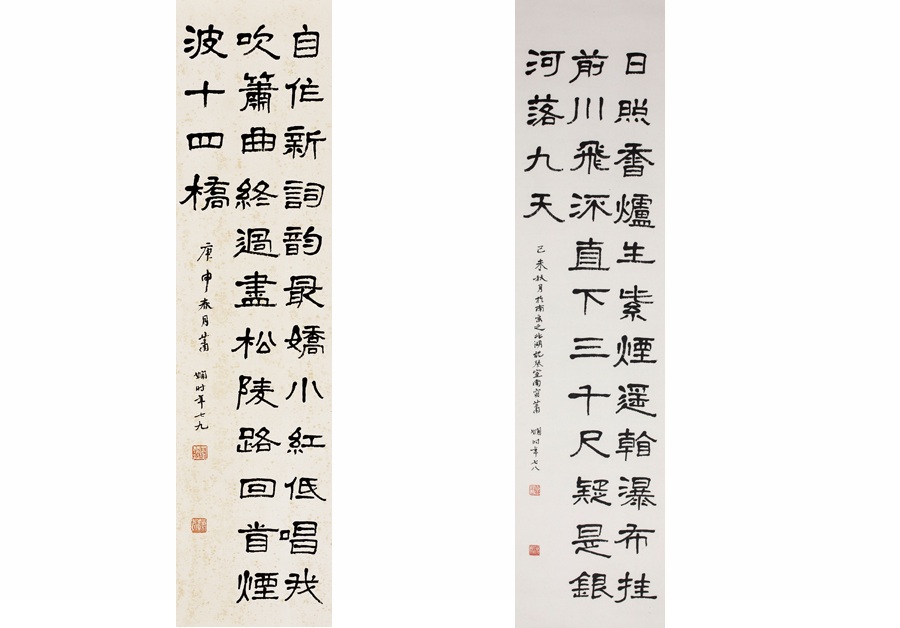 自作新詞韵最嬌小紅低唱我
吹簫曲終過盡松陵路回首煙
波十四橋
庚申春月蕭嫻时年七九
日照香爐生紫煙遥看瀑布挂
前川飛流直下三千尺疑是銀
河落九天
己未秋月於南京之湖蕭嫻时年七八